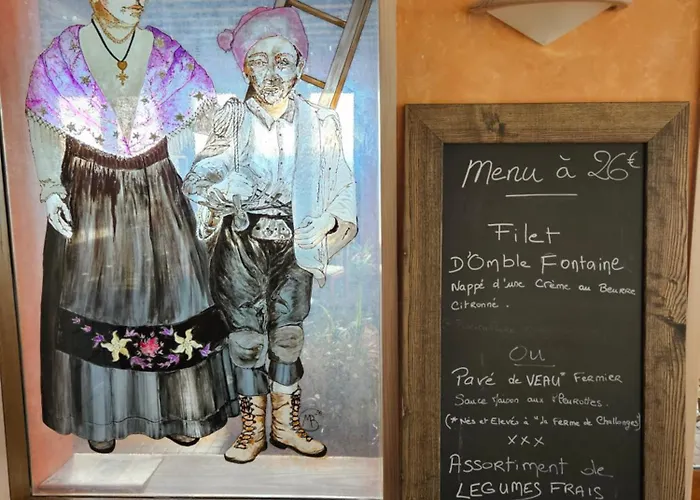 Menu à 26€
Filet
D'Omble Fontaine
Nappé d'une Crème au Beurre
Citronné.
OU
Pavé de VEAU* Fermier
Sauce Maison aux
(*Nés et Elevés à "la Ferme de Challonges)
xxx
ASSortiment de
LEGUMES FRAIS